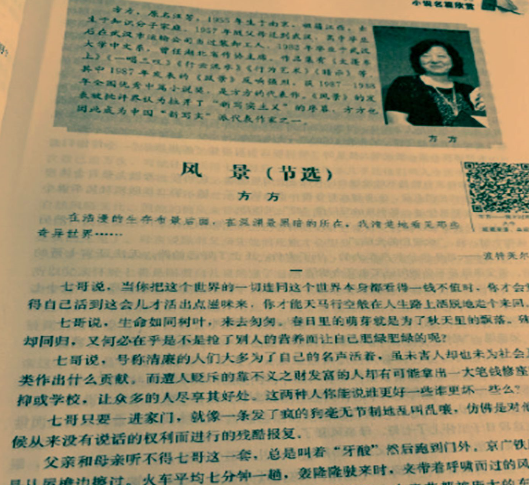 小说名篇欣赏
方方,原名汪芳,1955年生于南京,祖籍江西,生于知识分子家庭。1957年随父母迁到武汉,高中毕业
后在武汉市运输公司当过装卸工人。1982年毕业于武汉
大学中文系,曾任湖北省作协主席。作品集有《大篷车
上》《一唱三叹》《行云流水》《行为艺术》
其中1987年发表的《风景》反响强烈,获1987—1988
年全国优秀中篇小说奖,是方方的代表作。《风景》的发
表被批评界认为拉开了“新写实主义”的序幕,方方也
因此成为中国“新写实”派代表作家之一。
方方
风 景(节选)
方方
在浩漫的生存布景后面,在深渊最黑暗的所在,我清楚地看见那些
奇异世界……
——波特莱尔
一
七哥说,当你把这个世界的一切连同这个世界本身都看得一钱不值时,你才会
得自己活到这会儿才活出点滋味来,你才能天马行空般在人生路上洒脱地走个来回
七哥说,生命如同树叶,来去匆匆。春日里的萌芽就是为了秋天里的飘落。殊
却同归,又何必在乎是不是抢了别人的营养而让自己肥绿肥绿的呢?
七哥说,号称清廉的人们大多为了自己的名声活着,虽未害人却也未为社会
类作出什么贡献。而遭人贬斥的靠不义之财发富的人却有可能拿出一大笔钱修座
抑或学校,让众多的人尽享其好处。这两种人你能说谁更好一些谁更坏一些么?
七哥只要一进家门,就像一条发了疯的狗毫无节制地乱叫乱嚷,仿佛是对他
候从来没有说话的权利而进行的残酷报复。
父亲和母亲听不得七哥这一套,总是叫着“牙酸”然后跑到门外。京广铁
是从屋檐边擦过。火车平均七分钟一趟,轰隆隆驶来时,夹带着呼啸而过的风